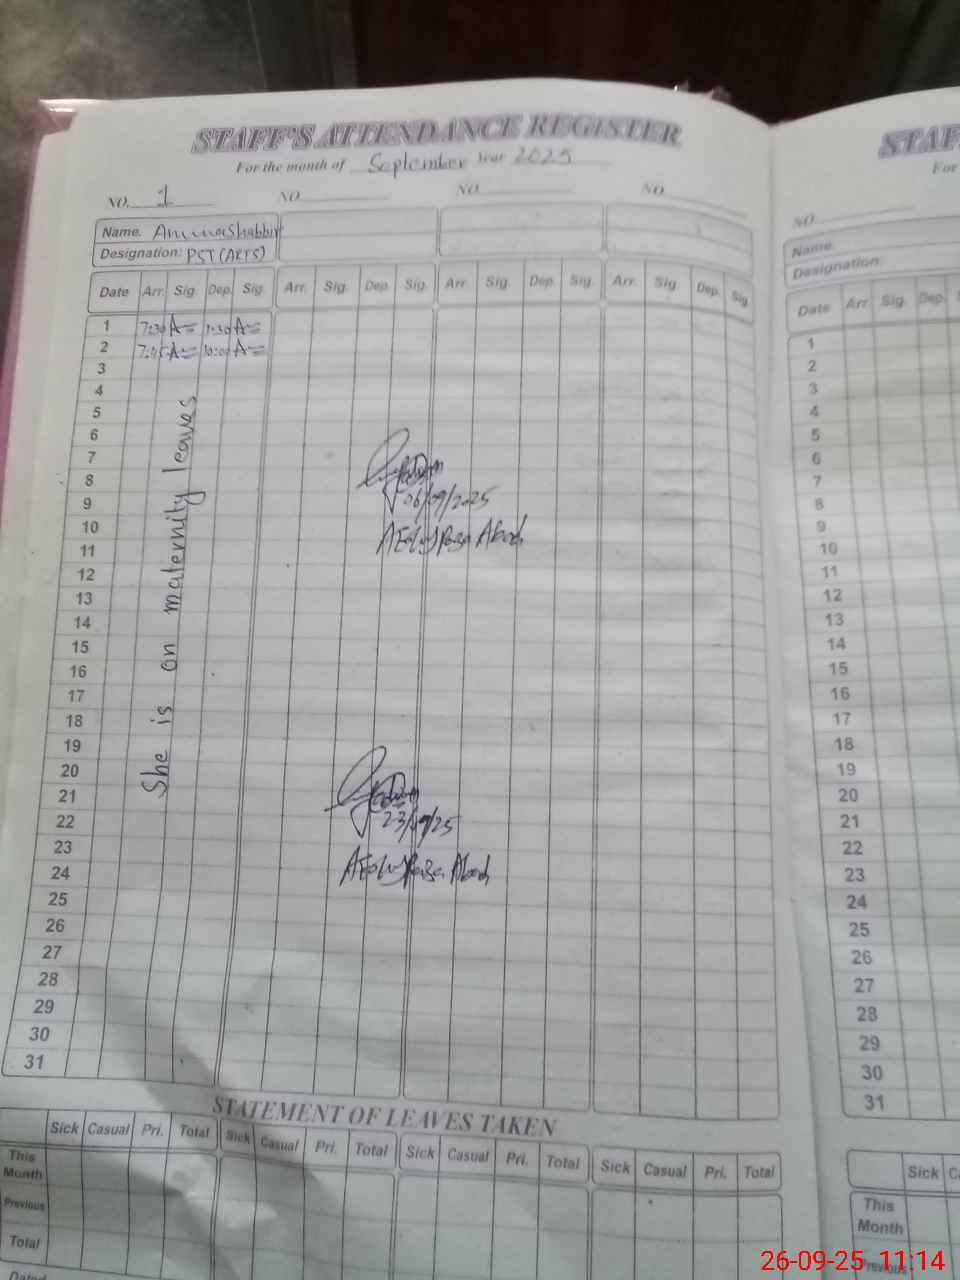 STAFF'S ATTENDANCE REGISTER
For the month of September Year 2025
NO. 1 NO. NO. NO.
Name. Amna Shabbir
Designation: PST (ARTS)
Date Arr. Sig. Dep. Sig. Arr. Sig. Dep. Sig. Arr. Sig. Dep. Sig. Arr. Sig. Dep. Sig.
1 7:30 A 1:30 A
2 7:15 A 10:00 A
3
4
5
6
7
8
9
10
11
12
13
14
15
16
17
18
19
20
21
22
23
24
25
26
27
28
29
30
31
She is on maternity leaves
06/09/2025
23/09/25
STATEMENT OF LEAVES TAKEN
Sick Casual Pri. Total Sick Casual Pri. Total Sick Casual Pri. Total Sick Casual Pri. Total
This Month
Previous
Total
Dated
STAF
For
NO.
Name.
Designation:
Date Arr. Sig. Dep.
1
2
3
4
5
6
7
8
9
10
11
12
13
14
15
16
17
18
19
20
21
22
23
24
25
26
27
28
29
30
31
Sick
This Month
Previous
26-09-25 11:14